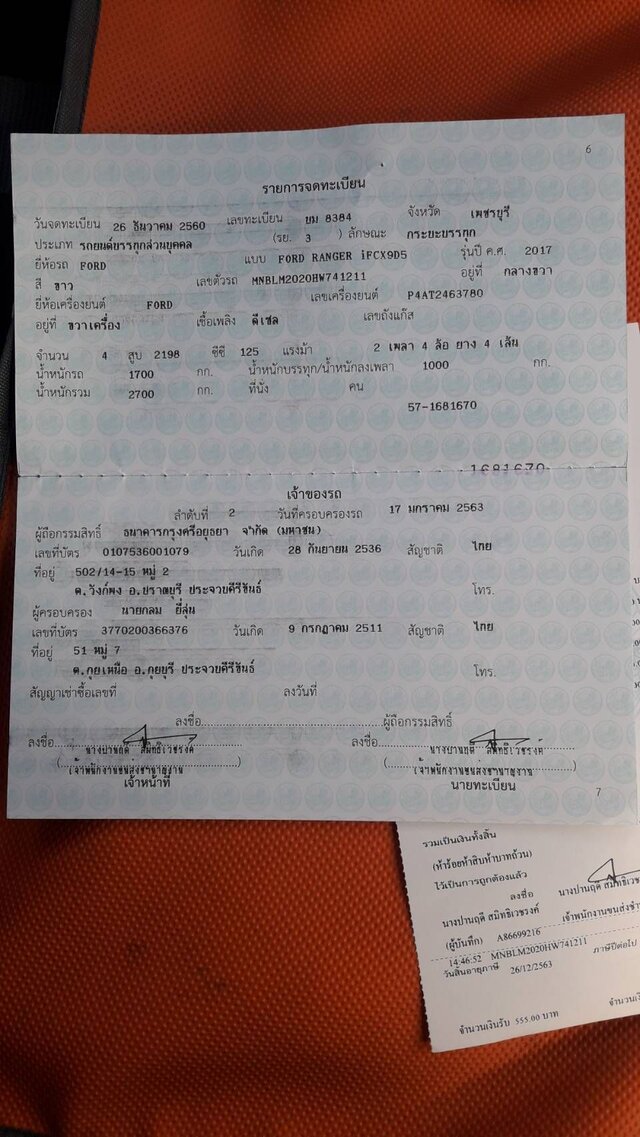 6
รายการจดทะเบียน
วันจดทะเบียน 26 ธันวาคม 2560 เลขทะเบียน ขม 8384 จังหวัด เพชรบุรี
ประเภท รถยนต์บรรทุกส่วนบุคคล (รย. 3 ) ลักษณะ กระบะบรรทุก
ยี่ห้อรถ FORD แบบ FORD RANGER iFCX9D5 รุ่นปี ค.ศ. 2017
สี ขาว เลขตัวรถ MNBLM2020HW741211 อยู่ที่ กลางขวา
ยี่ห้อเครื่องยนต์ FORD เลขเครื่องยนต์ P4AT2463780
อยู่ที่ ขวาเครื่อง เชื้อเพลิง ดีเซล เลขถังแก๊ส
จำนวน 4 สูบ 2198 ซีซี 125 แรงม้า 2 เพลา 4 ล้อ ยาง 4 เส้น
น้ำหนักรถ 1700 กก. น้ำหนักบรรทุก/น้ำหนักลงเพลา 1000 กก.
น้ำหนักรวม 2700 กก. ที่นั่ง คน
57-1681670
1681670
เจ้าของรถ
ลำดับที่ 2 วันที่ครอบครองรถ 17 มกราคม 2563
ผู้ถือกรรมสิทธิ์ ธนาคารกรุงศรีอยุธยา จำกัด (มหาชน)
เลขที่บัตร 0107536001079 วันเกิด 28 กันยายน 2536 สัญชาติ ไทย
ที่อยู่ 502/14-15 หมู่ 2
ต.วังก์พง อ.ปราณบุรี ประจวบคีรีขันธ์ โทร.
ผู้ครอบครอง นายกลม ยี่สุ่น
เลขที่บัตร 3770200366376 วันเกิด 9 กรกฎาคม 2511 สัญชาติ ไทย
ที่อยู่ 51 หมู่ 7
ต.กุยเหนือ อ.กุยบุรี ประจวบคีรีขันธ์ โทร.
สัญญาเช่าซื้อเลขที่ ลงวันที่
ลงชื่อ ผู้ถือกรรมสิทธิ์
ลงชื่อ ลงชื่อ
นางปานฤดี สมิทธิเวชรงค์ นางปานฤดี สมิทธิเวชรงค์
(เจ้าพนักงานขนส่งชำนาญงาน) (เจ้าพนักงานขนส่งชำนาญงาน)
เจ้าหน้าที่ นายทะเบียน
7
รวมเป็นเงินทั้งสิ้น
(ห้าร้อยห้าสิบห้าบาทถ้วน)
ไว้เป็นการถูกต้องแล้ว
ลงชื่อ นางปานฤดี สมิทธิเวชร
นางปานฤดี สมิทธิเวชรงค์ เจ้าพนักงานขนส่งชำ
(ผู้บันทึก) A86699216
14:46:52 MNBLM2020HW741211 ภาษีปีต่อไป
วันสิ้นอายุภาษี 26/12/2563
จำนวนเงินรับ 555.00 บาท จำนวนเงิ